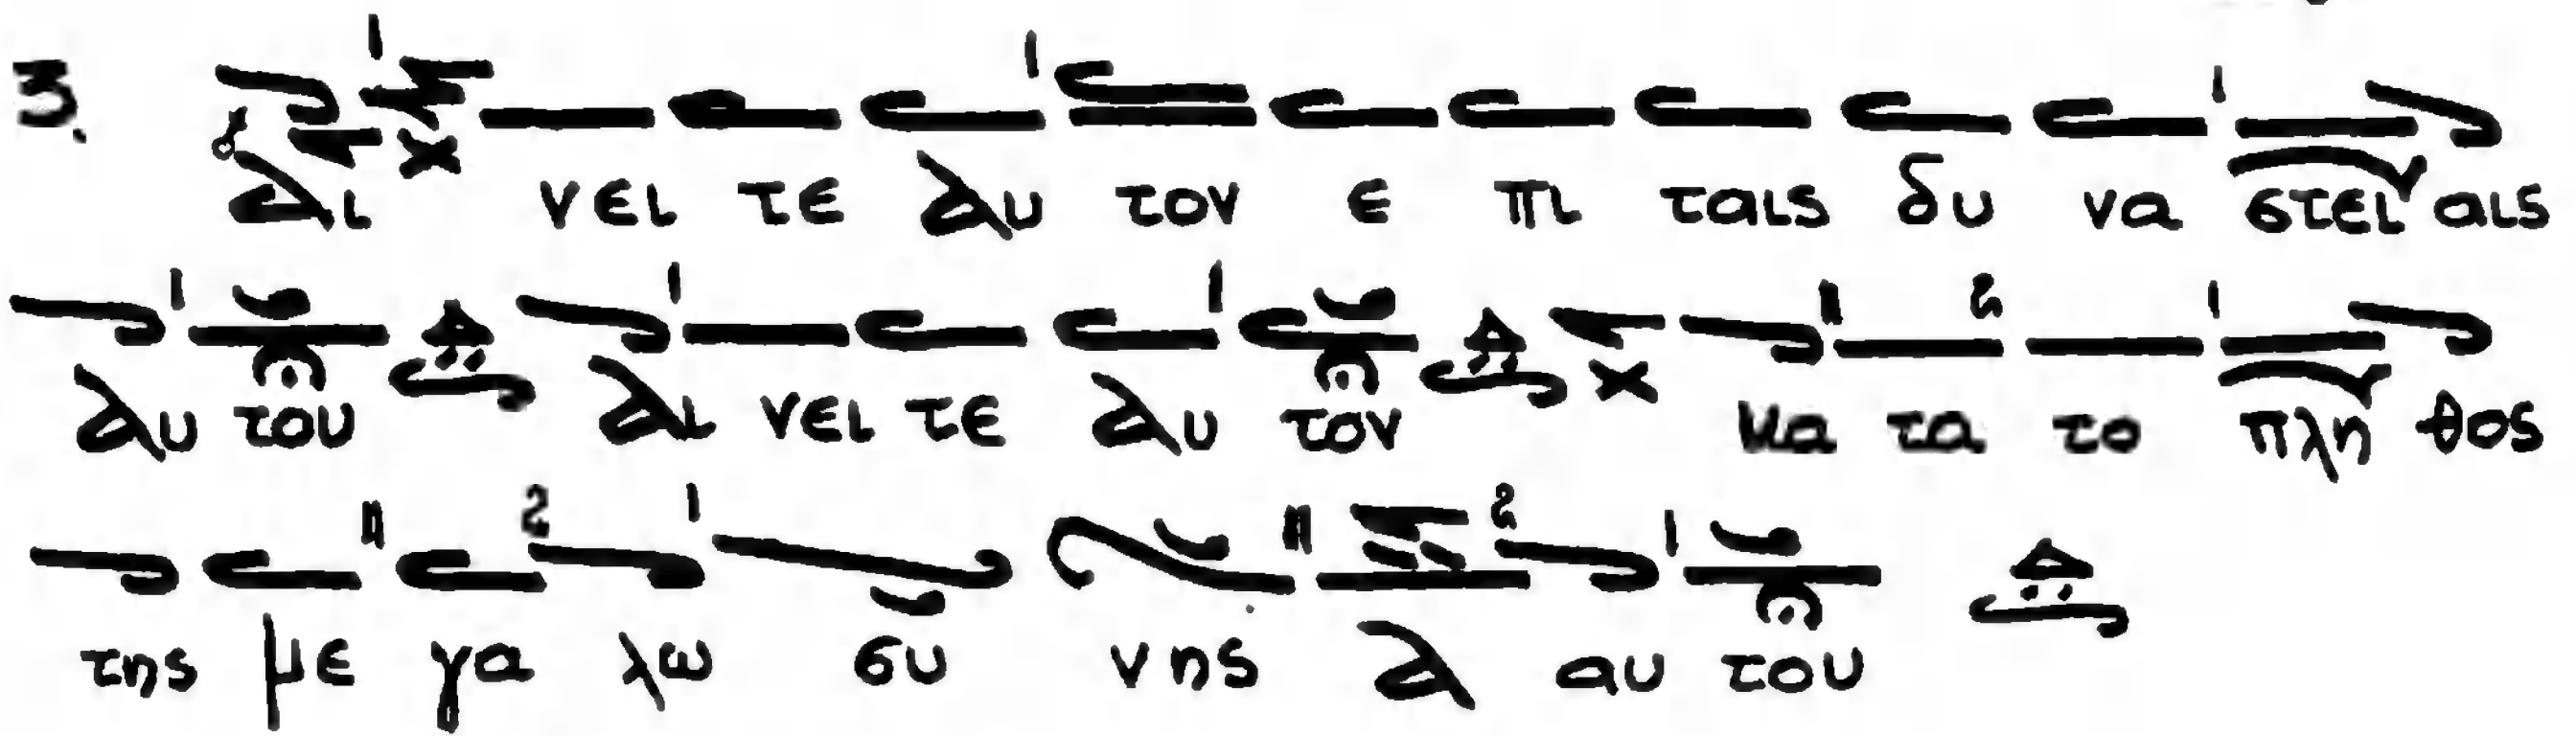 3. αι νει τε αυ τον ε πι ταις δυ να στει αις
αυ του αι νει τε αυ τον κα τα το πλη θος
της με γα λω συ νης α αυ του